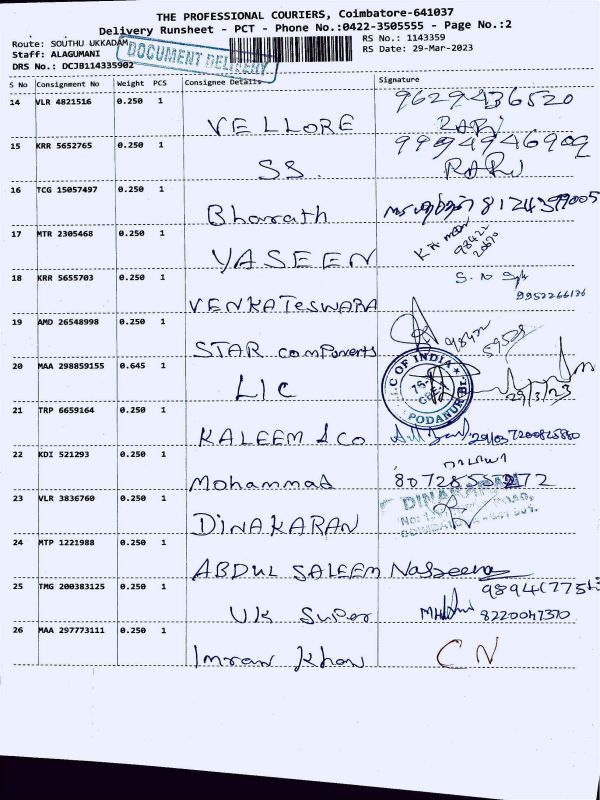 THE PROFESSIONAL COURIERS, Coimbatore-641037
Delivery Runsheet - PCT - Phone No.:0422-3505555 - Page No.:2
Route: SOUTHU UKKADAM
RS No.: 1143359
Staff: ALAGUMANI
RS Date: 29-Mar-2023
DOCUMENT DELIVERY
DRS No.: DCJB114335902
S No Consignment No Weight PCS Consignee Details Signature
14 VLR 4821516 0.250 1 VELLORE 9629436520
RARJ
15 KRR 5652765 0.250 1 SS. 9994946909
RARJ
16 TCG 15057497 0.250 1 Bharath 8124399005
17 MTR 2305468 0.250 1 YASEEN 98422 20670
18 KRR 5655703 0.250 1 VENKATESWARA S. N
9952266136
19 AMD 26548998 0.250 1 STAR components 98422 59528
20 MAA 298859155 0.645 1 LIC 29/3/23
C OF INDIA
PODANUR Br.
21 TRP 6659164 0.250 1 KALEEM & CO 29/03 7200825880
22 KDI 521293 0.250 1 Mohammad
8072855272
23 VLR 3836760 0.250 1 DINAKARAN
24 MTP 1221988 0.250 1 ABDUL SALEEM Naseema
25 TMG 200383125 0.250 1 UK Super
8220047370
26 MAA 297773111 0.250 1 Imran Khan CN